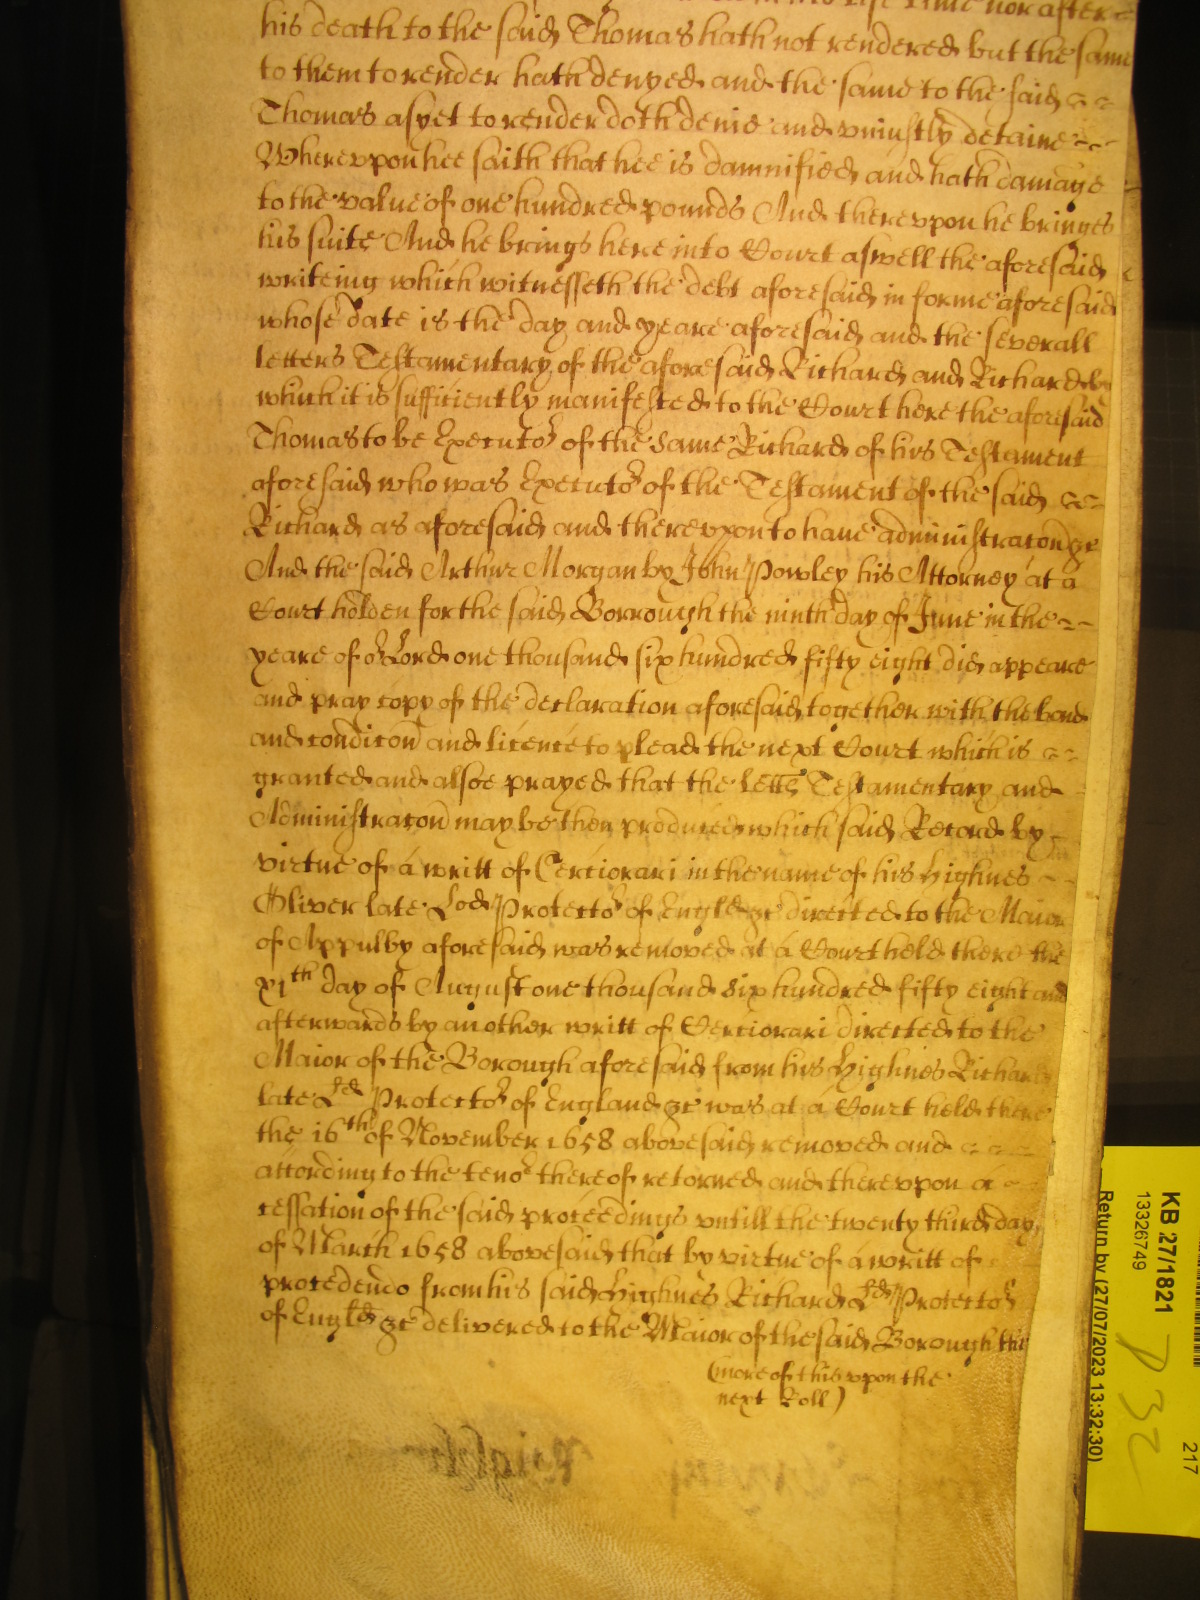 his life time nor after
his death to the said Thomas hath not rendered but the same
to them to render hath denyed and the same to the said
Thomas as yet to render doth denie and uniustly detaine
Whereupon hee saith that hee is damnified and hath damage
to the value of one hundred pounds And thereupon he bringes
his suite And he brings here into Court aswell the aforesaid
writeing which witnesseth the debt aforesaid in forme aforesaid
whose date is the day and yeare aforesaid and the severall
letters Testamentary of the aforesaid Richard and Richard by
which it is sufficiently manifested to the Court here the aforesaid
Thomas to be Executor of the same Richard of his Testament
aforesaid who was Executor of the Testament of the said
Richard as aforesaid and thereupon to have administracon &c
And the said Arthur Morgan by John Powley his Attorney at a
Court holden for the said Borrough the ninth day of June in the
yeare of or Lord one thousand six hundred fifty eight did appeare
and pray copy of the declaration aforesaid together with the bond
and condicon and licence to plead the next Court which is
granted and alsoe prayed that the letts Testamentary and
Administracon may be then produced which said Record by
virtue of a writt of Certiorari in the name of his Highnes
Oliver late Lod Protector of Engld &c directed to the Maior
of Appulby aforesaid was removed at a Court held there the
xith day of August one thousand six hundred fifty eight and
afterwards by another writt of Certiorari directed to the
Maior of the Borough aforesaid from his Highnes Richard
late Ld Protector of England &c was at a Court held there
the 16th of November 1658 abovesaid removed and
according to the tenor thereof retorned and thereupon a
cessation of the said proceedings untill the twenty third day
of March 1658 abovesaid that by virtue of a writt of
procedendo from his said Highnes Richard Ld Protector
of Engld &c delivered to the Maior of the said Borough the
(more of this upon the
next Roll)
KB 27/1821
13326749
Return by (27/07/2023 13:32:30)
217
P 32